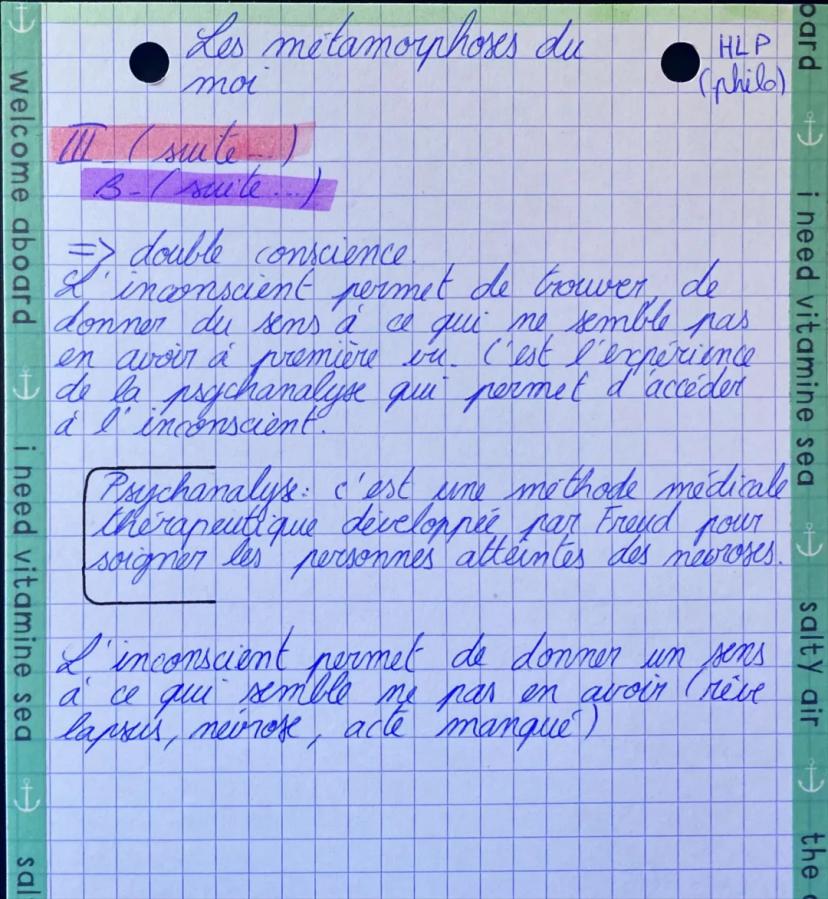 Les métamorphoses du
moi
HLP
(philo)
III - ( suite ...)
B - ( suite ...)
=> double conscience.
L'inconscient permet de trouver, de
donner du sens à ce qui ne semble pas
en avoir à première vu. C'est l'expérience
de la psychanalyse qui permet d'accéder
à l'inconscient.
Psychanalyse: c'est une méthode médicale
thérapeutique développée par Freud pour
soigner les personnes atteintes des névroses.
L'inconscient permet de donner un sens
à ce qui semble ne pas en avoir (rêve
lapsus, névrose, acte manqué)
welcome aboard
i need vitamine sea
sal
oard
i need vitamine sea
salty air
the